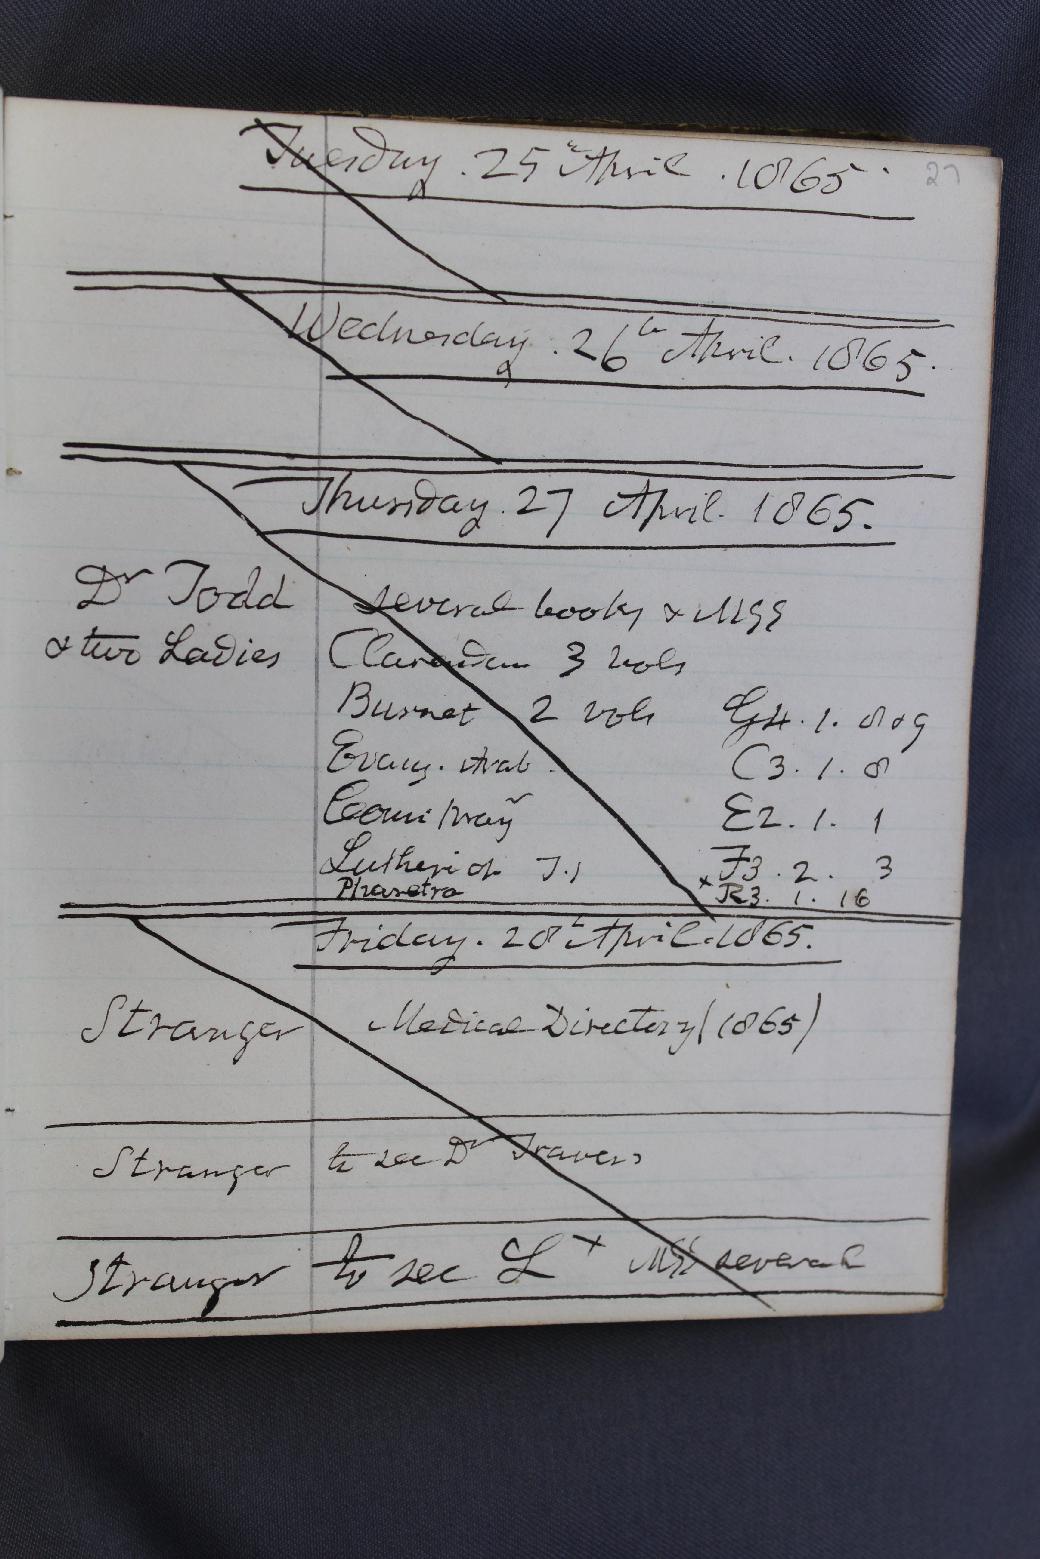 27
Tuesday . 25th April . 1865 .
Wednesday . 26th April . 1865 .
Thursday . 27 April . 1865 .
Dr Todd several books & MSS
& two Ladies Clarendon 3 vols
Burnet 2 vols G4 . 1 . 8 & 9
Evang . Arab . C3 . 1 . 8
E2 . 1 . 1
F3 . 2 . 3
Pharetra x R3 . 1 . 16
Friday . 28th April . 1865 .
Stranger Medical Directory (1865)
Stranger to see Dr Travers
Stranger to see L x MSS several